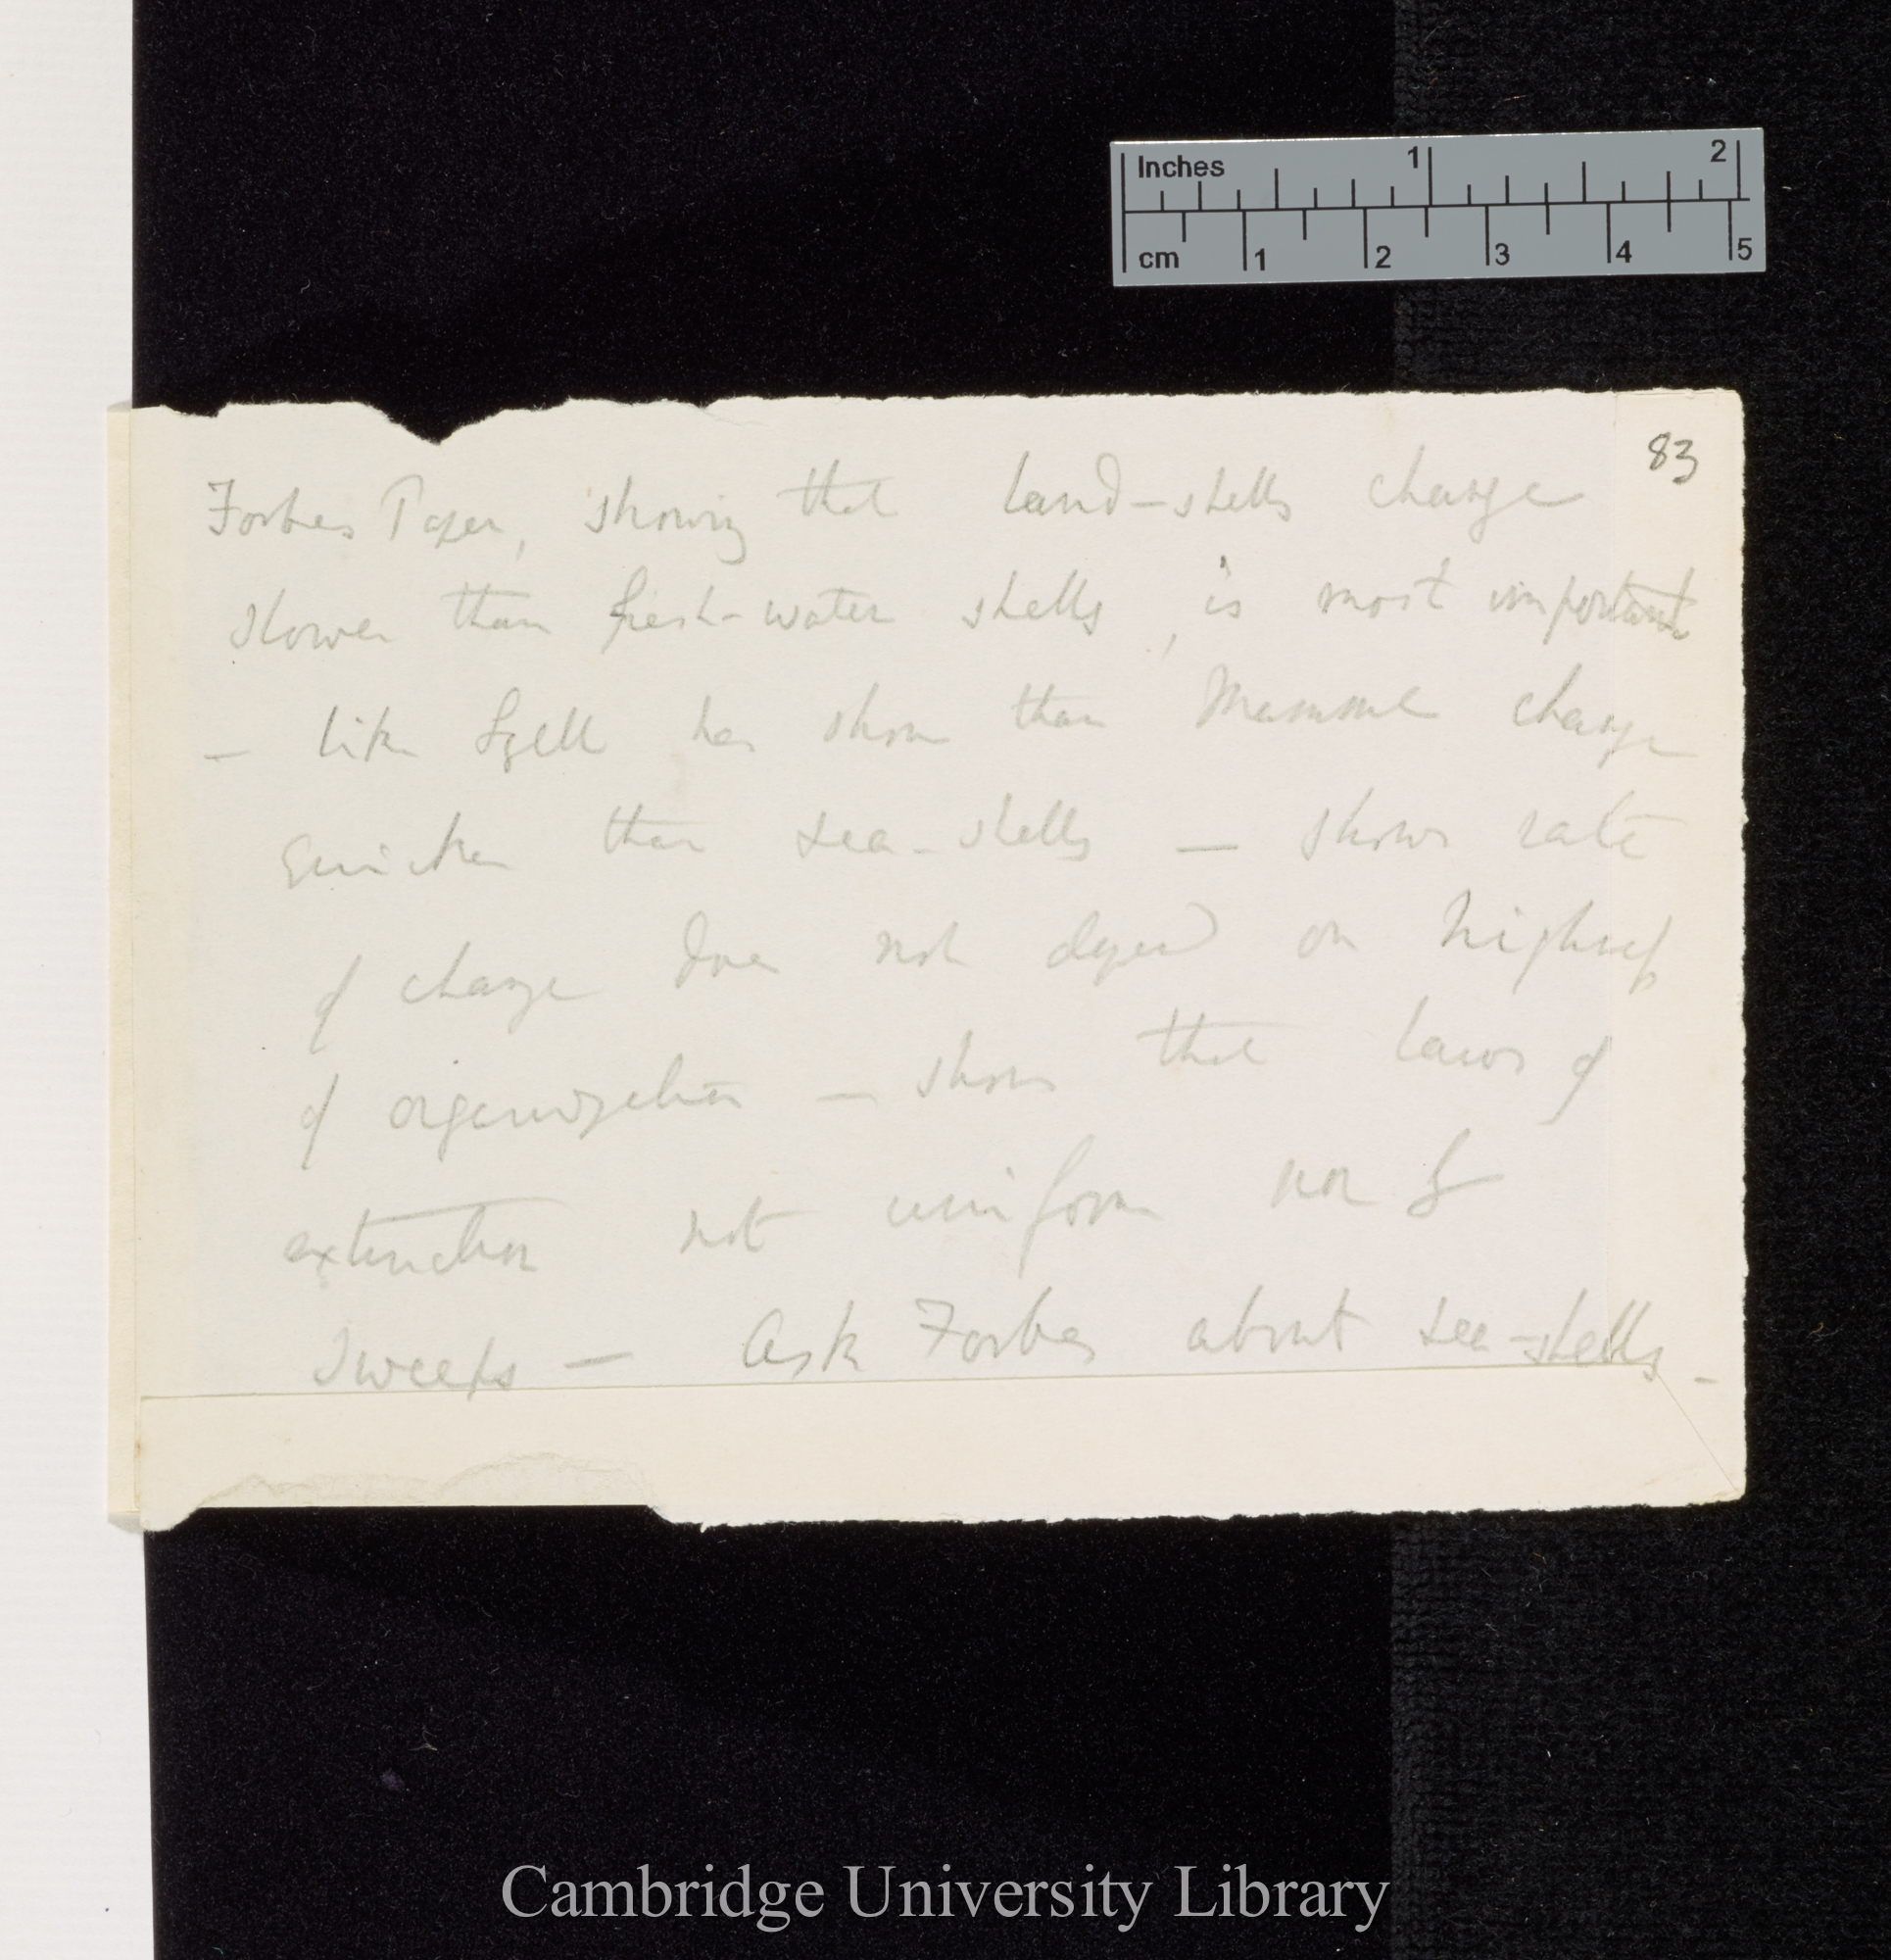 Inches 1 2
cm 1 2 3 4 5
83
Forbes Paper, showing that land-shells change
slower than fresh-water shells, is most important
— like Lyell has shown than Mammal change
quicker than sea-shells — shows rate
of change does not depend on highness
of organization — shows that laws of
extinction not uniform nor by
sweeps — Ask Forbes about sea-shells —
Cambridge University Library